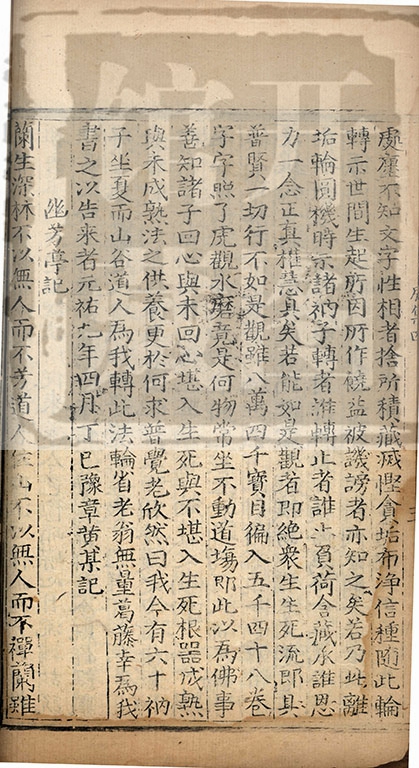 處塵不知文字性相者捨所積藏滅慳貪垢布淨信種隨此輪
轉示世間生起所因所作饒益被譏謗者亦知之矣若乃此離
垢輪圓機時示諸衲子轉者誰轉止者誰止負荷含藏承誰恩
力一念正真權慧具矣若能如是觀者即絶衆生生死流即具
普賢一切行不如是觀雖八萬四千寶目徧入五千四十八卷
字字照了虎觀水磨竟是何物常坐不動道塲即此以為佛事
善知諸子回心與未回心堪入生死與不堪入生死根器成熟
與未成熟法之供養更於何求普覺老欣然曰我今有六十衲
子坐夏而山谷道人為我轉此法輪省老翁無量葛藤幸為我
書之以告来者元祐九年四月丁巳豫章黄某記
幽芳亭記
蘭生深林不以無人而不芳道人住山不以無人而不禪蘭雖